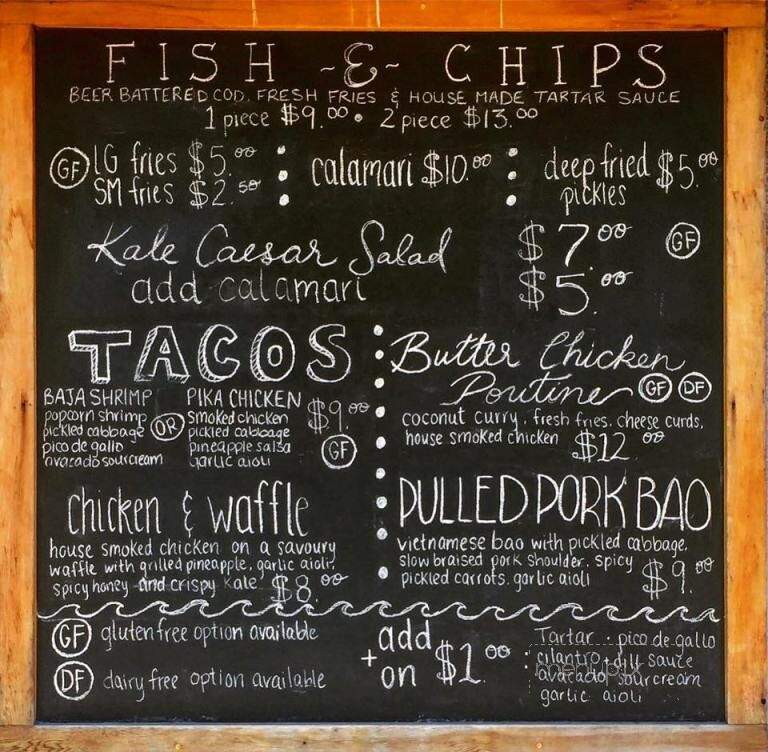 FISH -&- CHIPS
BEER BATTERED COD, FRESH FRIES & HOUSE MADE TARTAR SAUCE
1 piece $9.00 • 2 piece $13.00
GF LG fries $5.00
SM fries $2.50
calamari $10.00
deep fried pickles $5.00
Kale Caesar Salad $7.00 GF
add calamari $5.00
TACOS
BAJA SHRIMP
popcorn shrimp
pickled cabbage
pico de gallo
avacado sourcream
OR
PIKA CHICKEN
smoked chicken
pickled cabbage
pineapple salsa
garlic aioli
$9.00
GF
Butter Chicken
Poutine GF DF
coconut curry, fresh fries, cheese curds,
house smoked chicken $12.00
chicken & waffle
house smoked chicken on a savoury
waffle with grilled pineapple, garlic aioli,
spicy honey and crispy kale $8.00
PULLED PORK BAO
vietnamese bao with pickled cabbage,
slow braised pork shoulder, spicy
pickled carrots, garlic aioli $9.00
GF gluten free option available
DF dairy free option available
+ add on $1.00 :
Tartar • pico de gallo
cilantro + dill sauce
avacado sourcream
garlic aioli